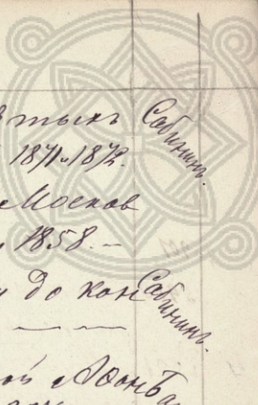 тыхъ Сабининъ.
1871 и 1872.
Москов
1858. –
до кон Сабининъ.
ой Афон Ба